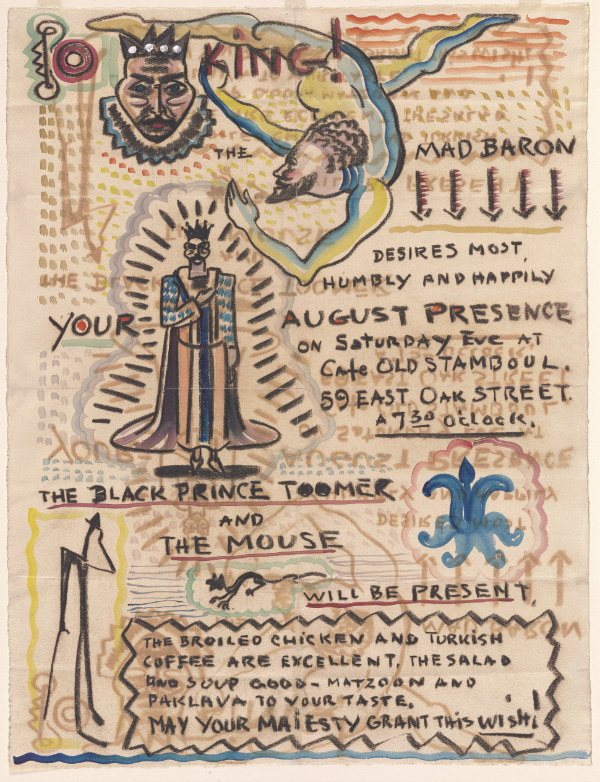 KING!
THE
MAD BARON
DESIRES MOST,
HUMBLY AND HAPPILY
YOUR
AUGUST PRESENCE
ON SATURDAY EVE AT
Cafe OLD STAMBOUL.
59 EAST OAK STREET.
AT 7 30 O'CLOCK.
THE BLACK PRINCE TOOMER
AND
THE MOUSE
WILL BE PRESENT.
THE BROILED CHICKEN AND TURKISH
COFFEE ARE EXCELLENT. THE SALAD
AND SOUP GOOD - MATZOON AND
PAKLAVA TO YOUR TASTE.
MAY YOUR MAJESTY GRANT THIS WISH!